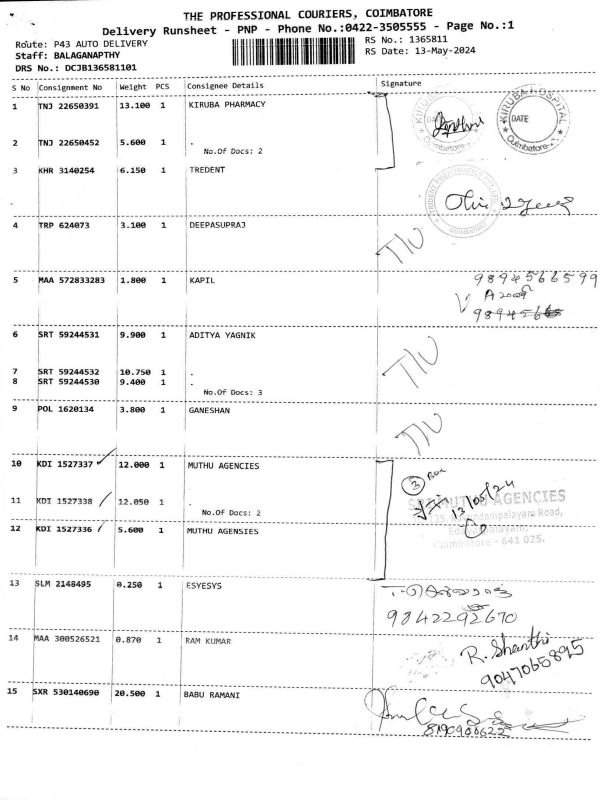 THE PROFESSIONAL COURIERS, COIMBATORE
Delivery Runsheet - PNP - Phone No.:0422-3505555 - Page No.:1
Route: P43 AUTO DELIVERY
RS No.: 1365811
Staff: BALAGANAPTHY
RS Date: 13-May-2024
DRS No.: DCJB136581101
S No Consignment No Weight PCS Consignee Details Signature
1 TNJ 22650391 13.100 1 KIRUBA PHARMACY
KIRUBA HOSPITAL
DATE
Coimbatore
KIRUBA HOSPITAL
DATE
Coimbatore
2 TNJ 22650452 5.600 1 .
No.Of Docs: 2
3 KHR 3140254 6.150 1 TREDENT
COIMBATORE
4 TRP 624073 3.100 1 DEEPASUPRAJ
T/U
5 MAA 572833283 1.800 1 KAPIL
9894566599
6 SRT 59244531 9.900 1 ADITYA YAGNIK
T/U
7 SRT 59244532 10.750 1 .
8 SRT 59244530 9.400 1 .
No.Of Docs: 3
9 POL 1620134 3.800 1 GANESHAN
T/U
10 KDI 1527337 12.000 1 MUTHU AGENCIES
3 Box
13/05/24
11 KDI 1527338 12.050 1 .
No.Of Docs: 2
MUTHU AGENCIES
Road,
12 KDI 1527336 5.600 1 MUTHU AGENSIES
Coimbatore - 641 025.
13 SLM 2148495 0.250 1 ESYESYS
9842292670
14 MAA 300526521 0.870 1 RAM KUMAR
R. Shanthi
9047065895
15 SXR 530140690 20.500 1 BABU RAMANI
8190900622